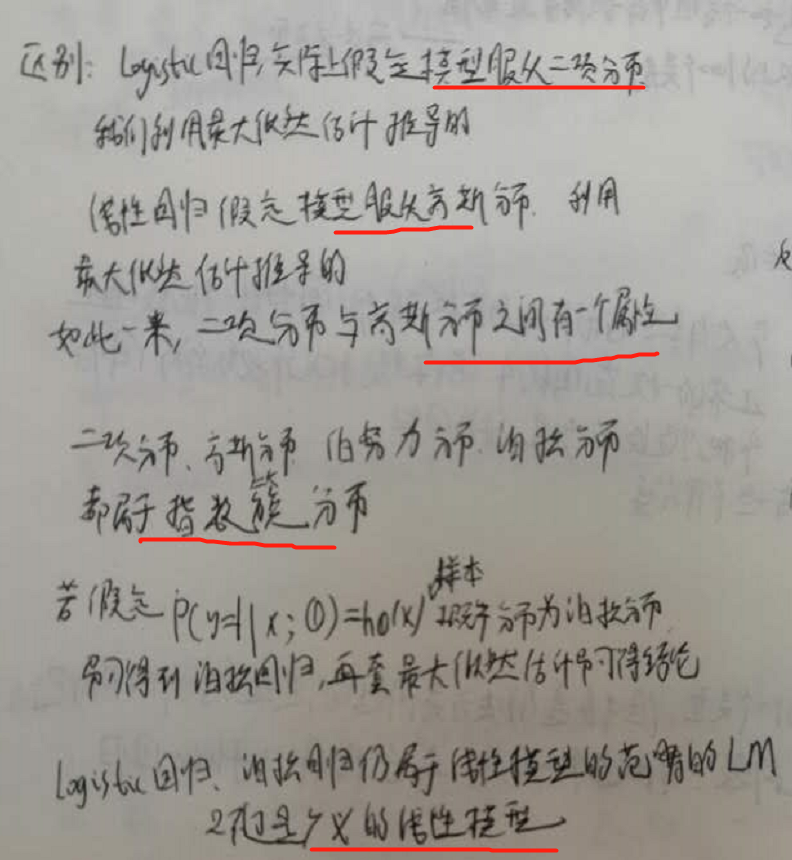 区别: Logistic回归,实际上假定模型服从二项分布
我们利用最大似然估计推导的
线性回归假定模型服从高斯分布. 利用
最大似然估计推导的
如此一来, 二项分布与高斯分布之间有一个属性
二项分布、高斯分布 伯努力分布 泊松分布
都属于指数族分布
若假定 P(y=1|x;θ)=hθ(x) 样本 分布为泊松分布
即可得到泊松回归,再套最大似然估计即可得结论
Logistic回归、泊松回归仍属于线性模型的范畴的LM
X的线性模型